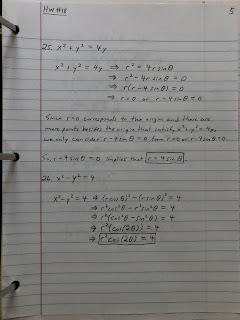 HW #18 5
25. x² + y² = 4y
x² + y² = 4y ⇒ r² = 4r sinθ
⇒ r² - 4r sinθ = 0
⇒ r(r - 4 sinθ) = 0
⇒ r = 0 or r - 4 sinθ = 0
Since r=0 corresponds to the origin and there are
more points besides the origin that satisfy x² + y² = 4y,
we only consider r - 4 sinθ = 0 from r=0 or r - 4 sinθ = 0.
So, r - 4 sinθ = 0 implies that r = 4 sinθ.
26. x² - y² = 4
x² - y² = 4 ⇒ (r cosθ)² - (r sinθ)² = 4
⇒ r² cos²θ - r² sin²θ = 4
⇒ r² (cos²θ - sin²θ) = 4
⇒ r² (cos(2θ)) = 4
⇒ r² cos(2θ) = 4